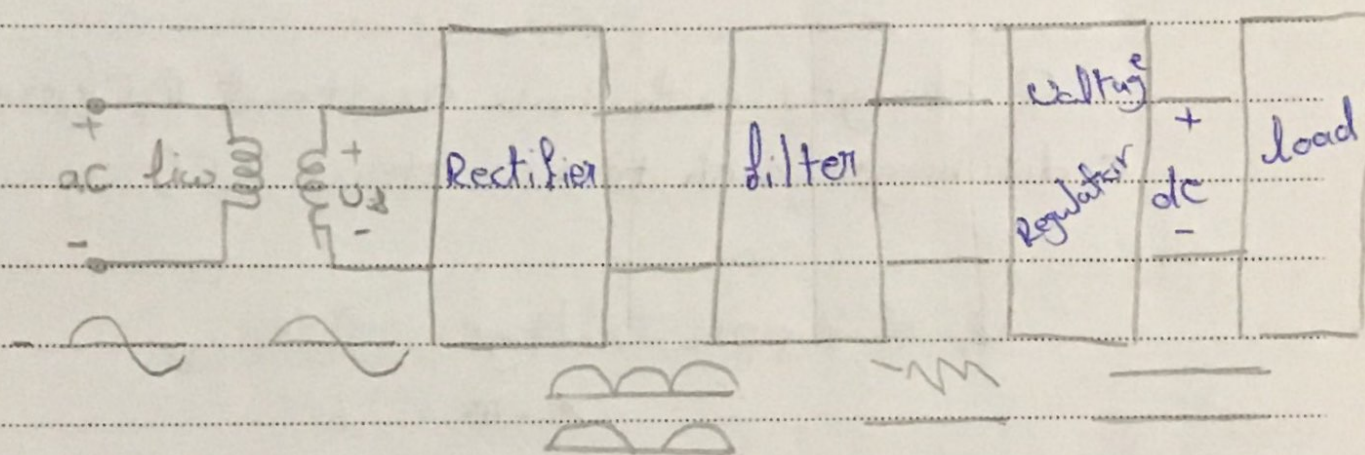 +
ac line
-
+
υs
-
Rectifier
filter
Voltage
Regulator
+
dc
-
load